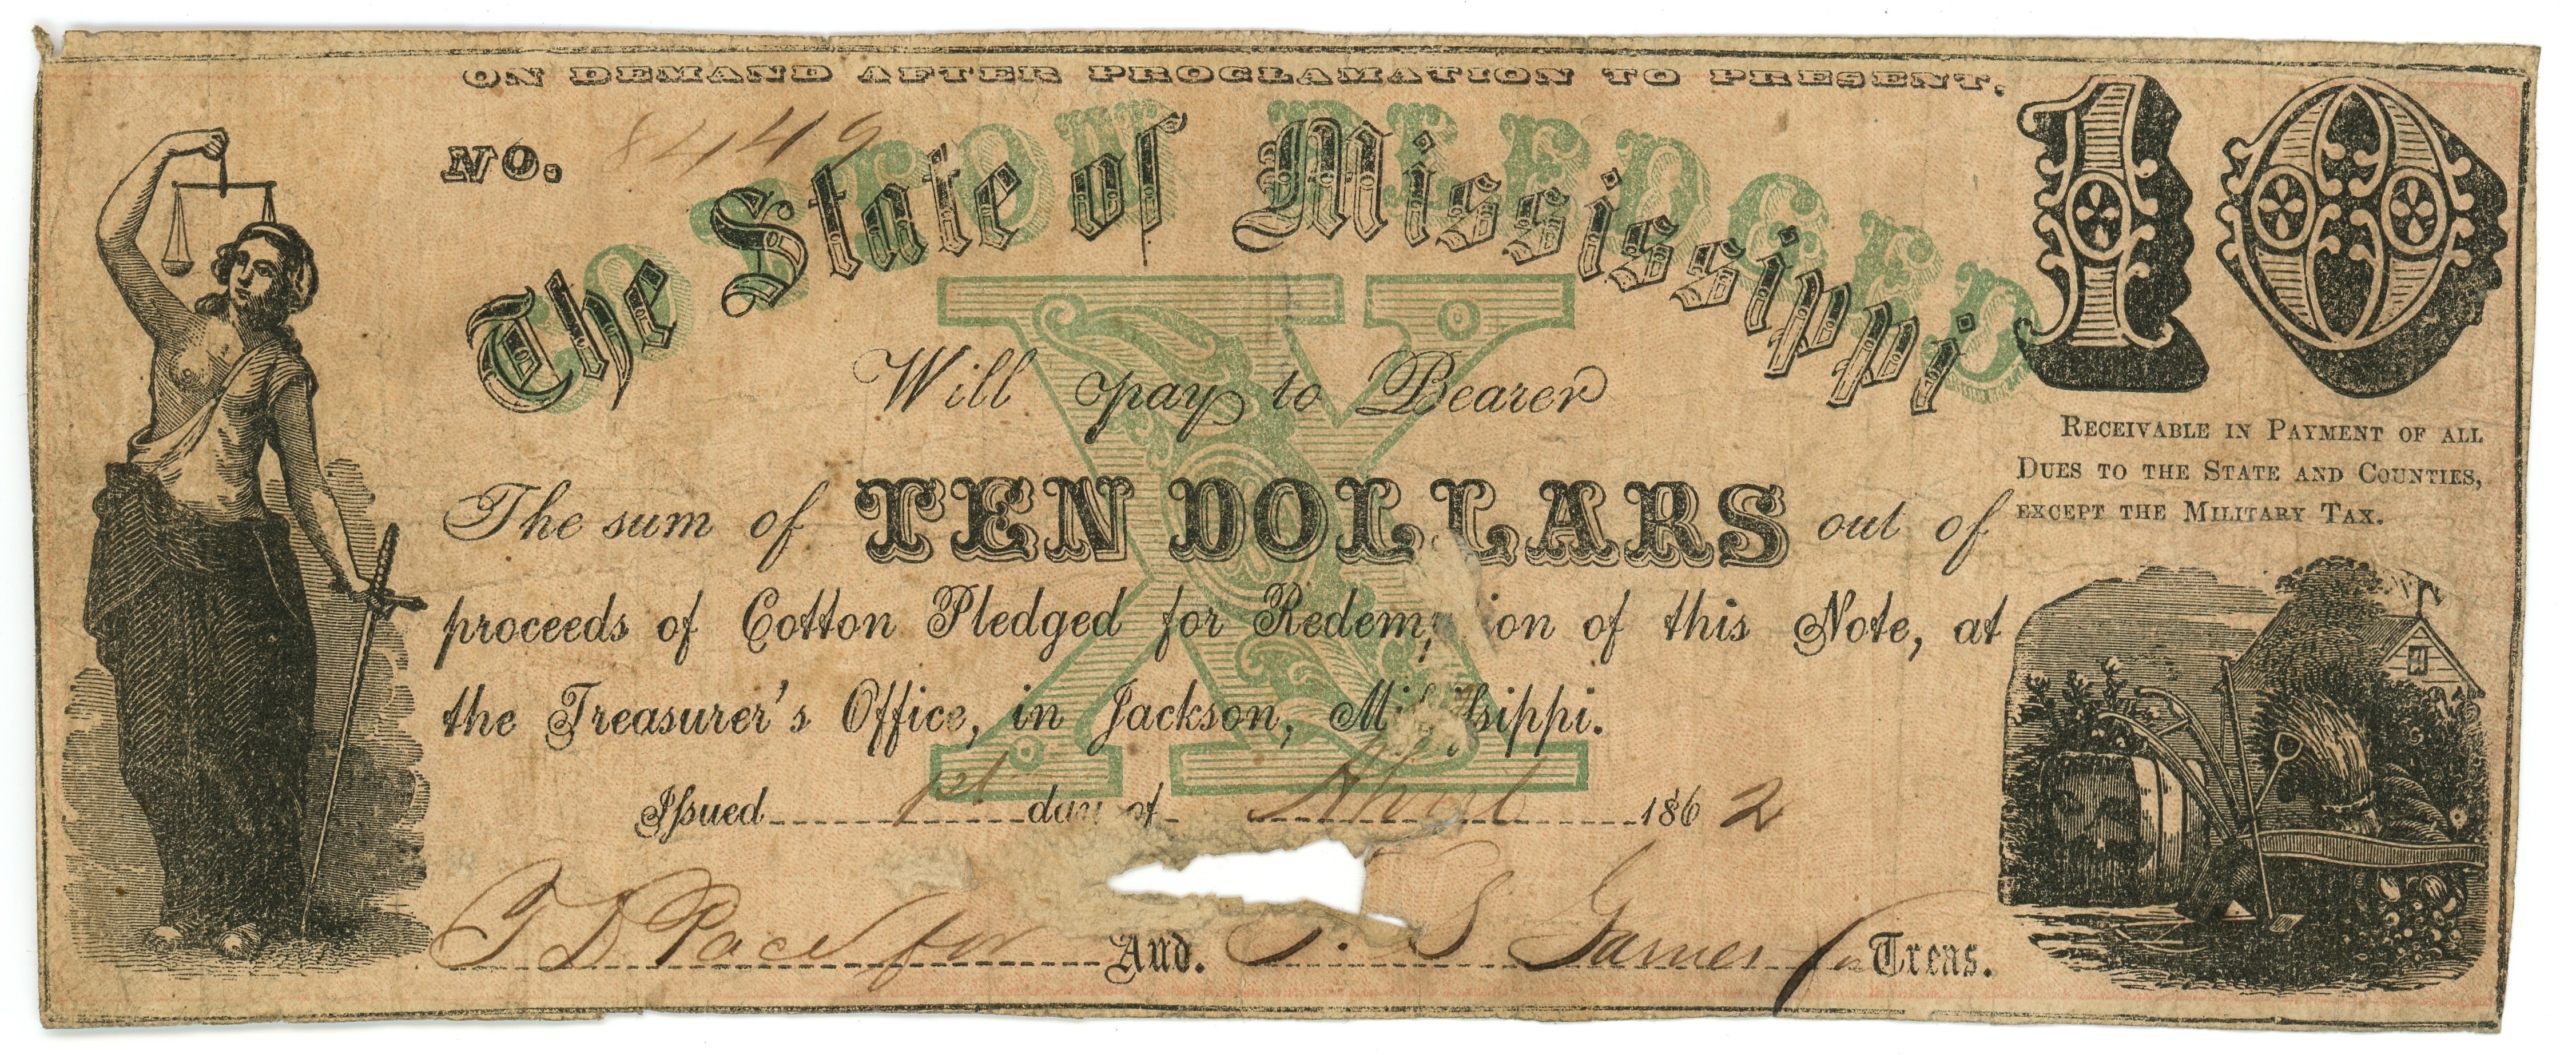 ON DEMAND AFTER PROCLAMATION TO PRESENT.
No. 8449
COTTON PLEDGED
The State of Mississippi
10
X
Will pay to Bearer
Receivable in Payment of all
Dues to the State and Counties,
except the Military Tax.
The sum of TEN DOLLARS out of
proceeds of Cotton Pledged for Redem on of this Note, at
the Treasurer's Office, in Jackson, Mi sippi.
Issued 1st day of April 1862
T D Pace for Aud. S Garner for Treas.